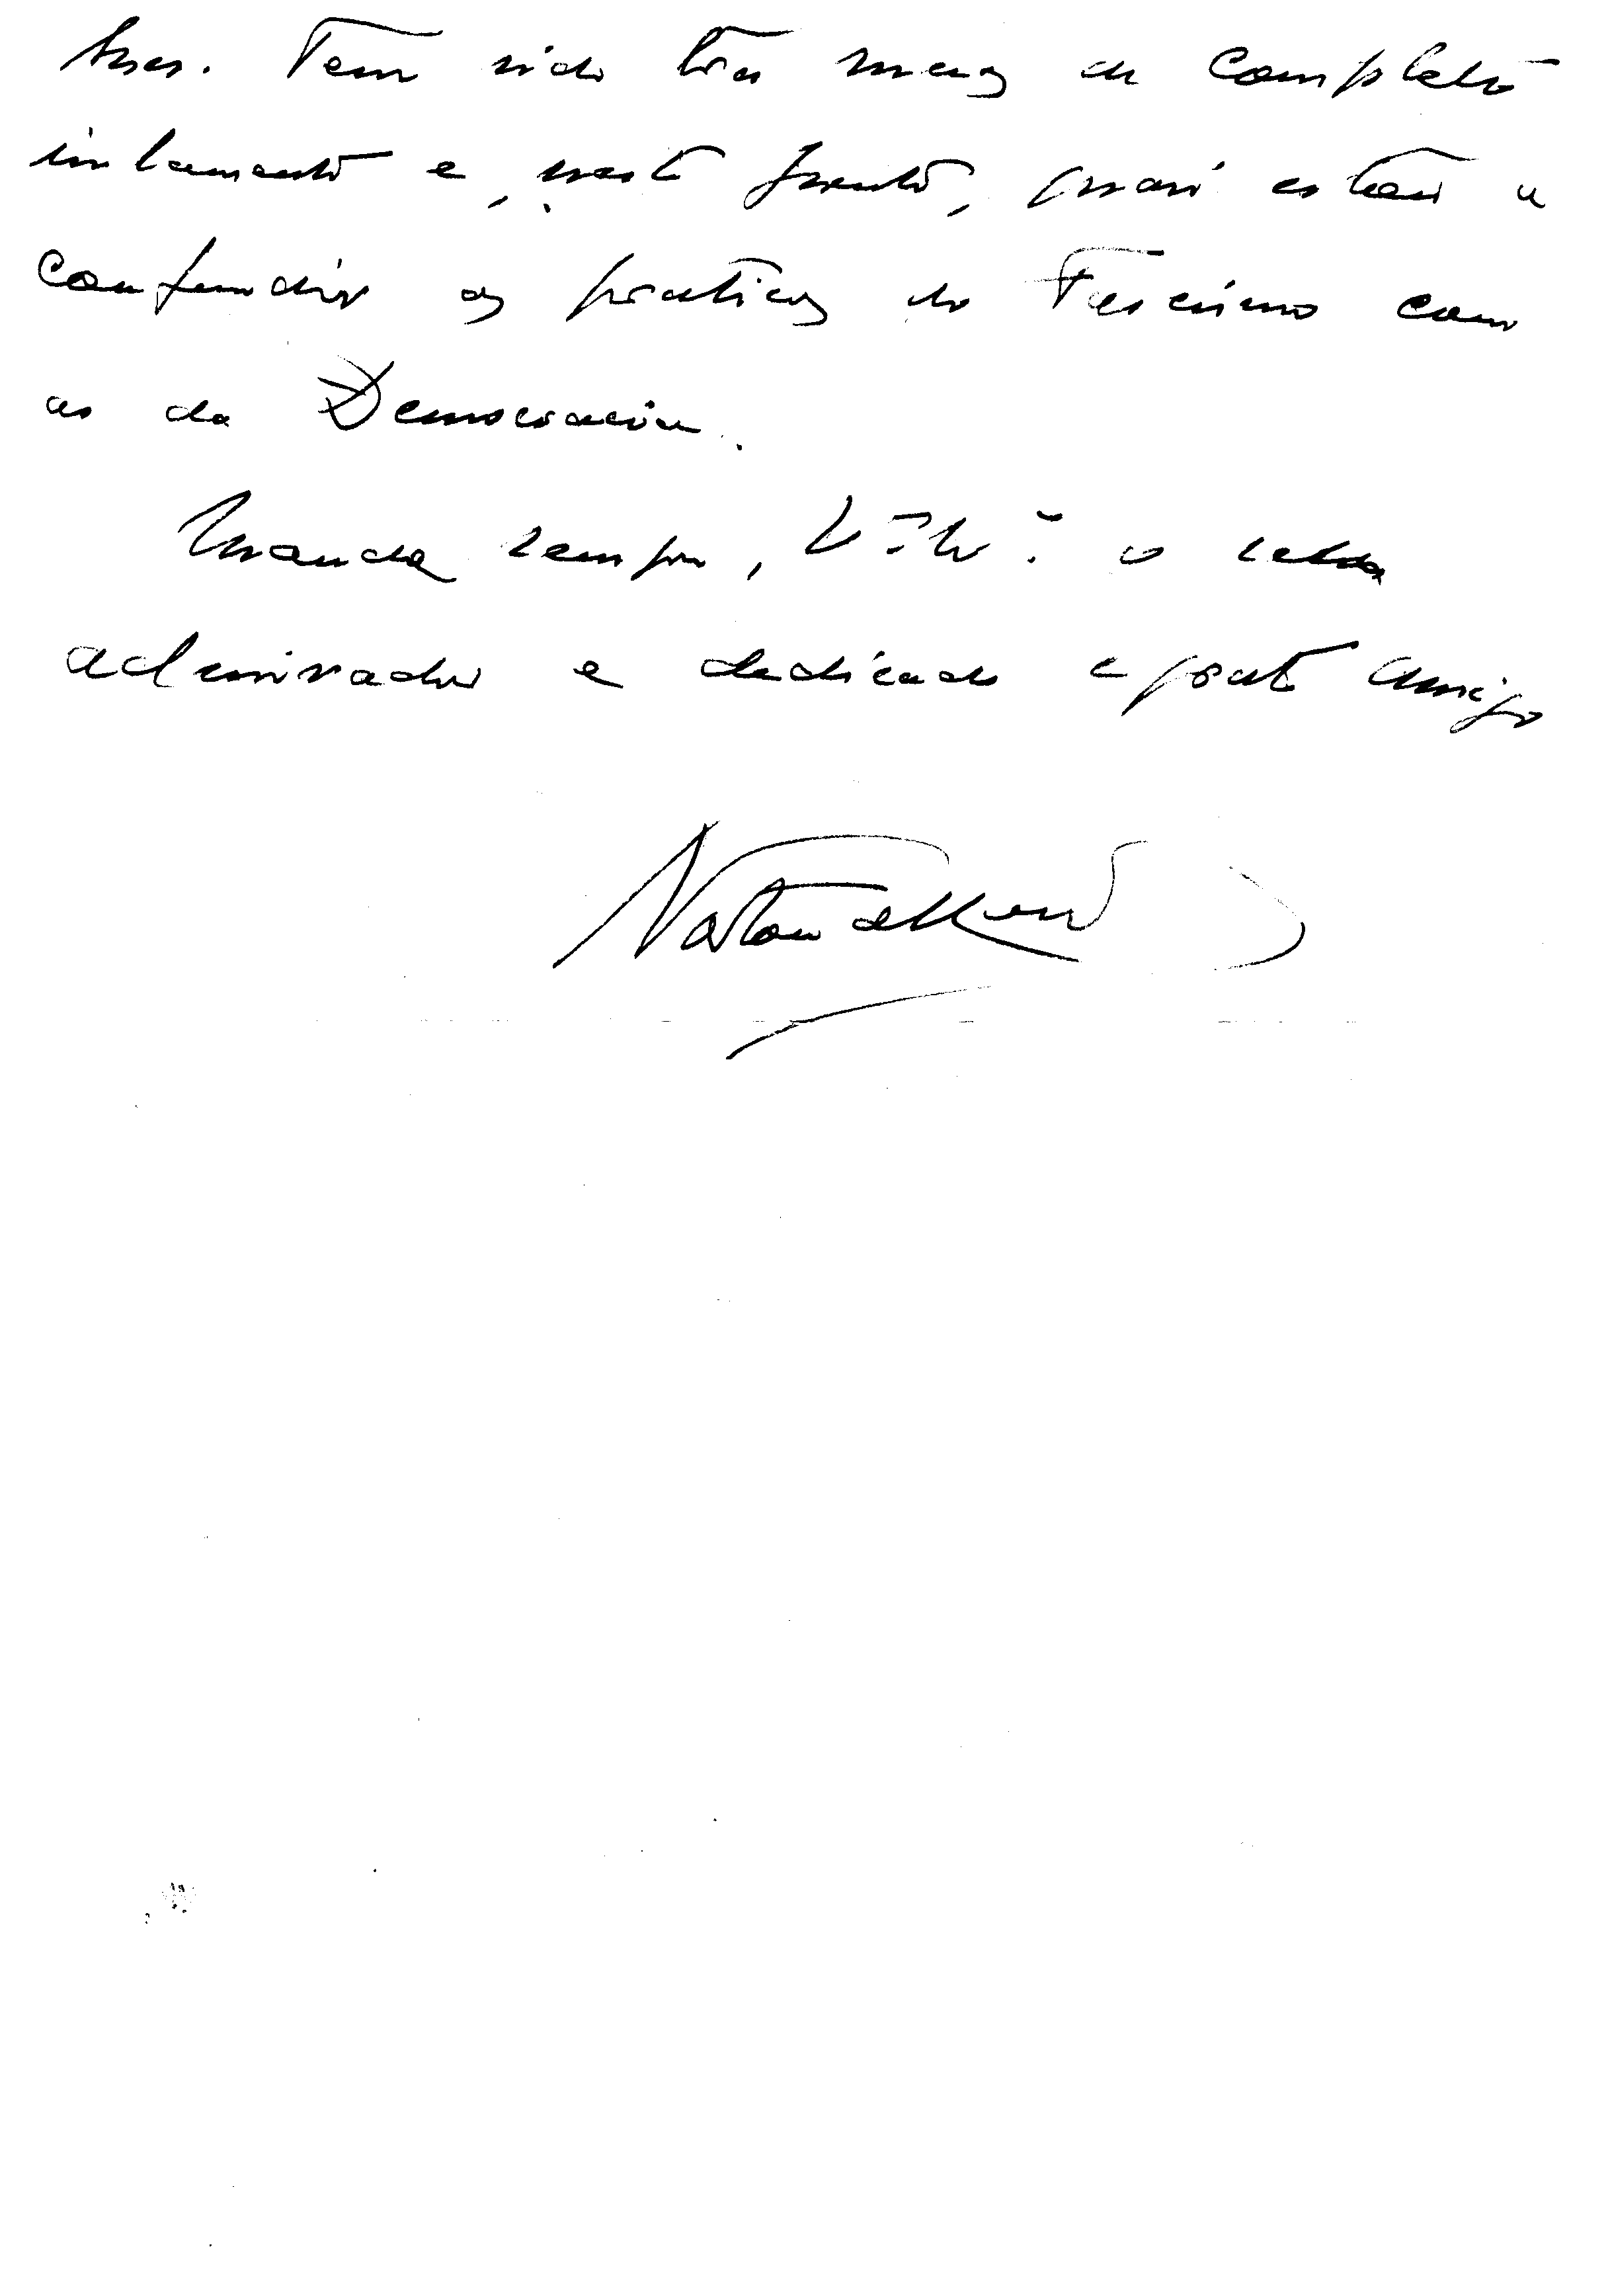 Tem sido três meses de completo
isolamento e, neste ponto, quasi estão a
confundir as praticas do Fascismo com
as da Democracia.
Manda sempre, o
admirador e dedicado e grato amigo
Norton de Matos